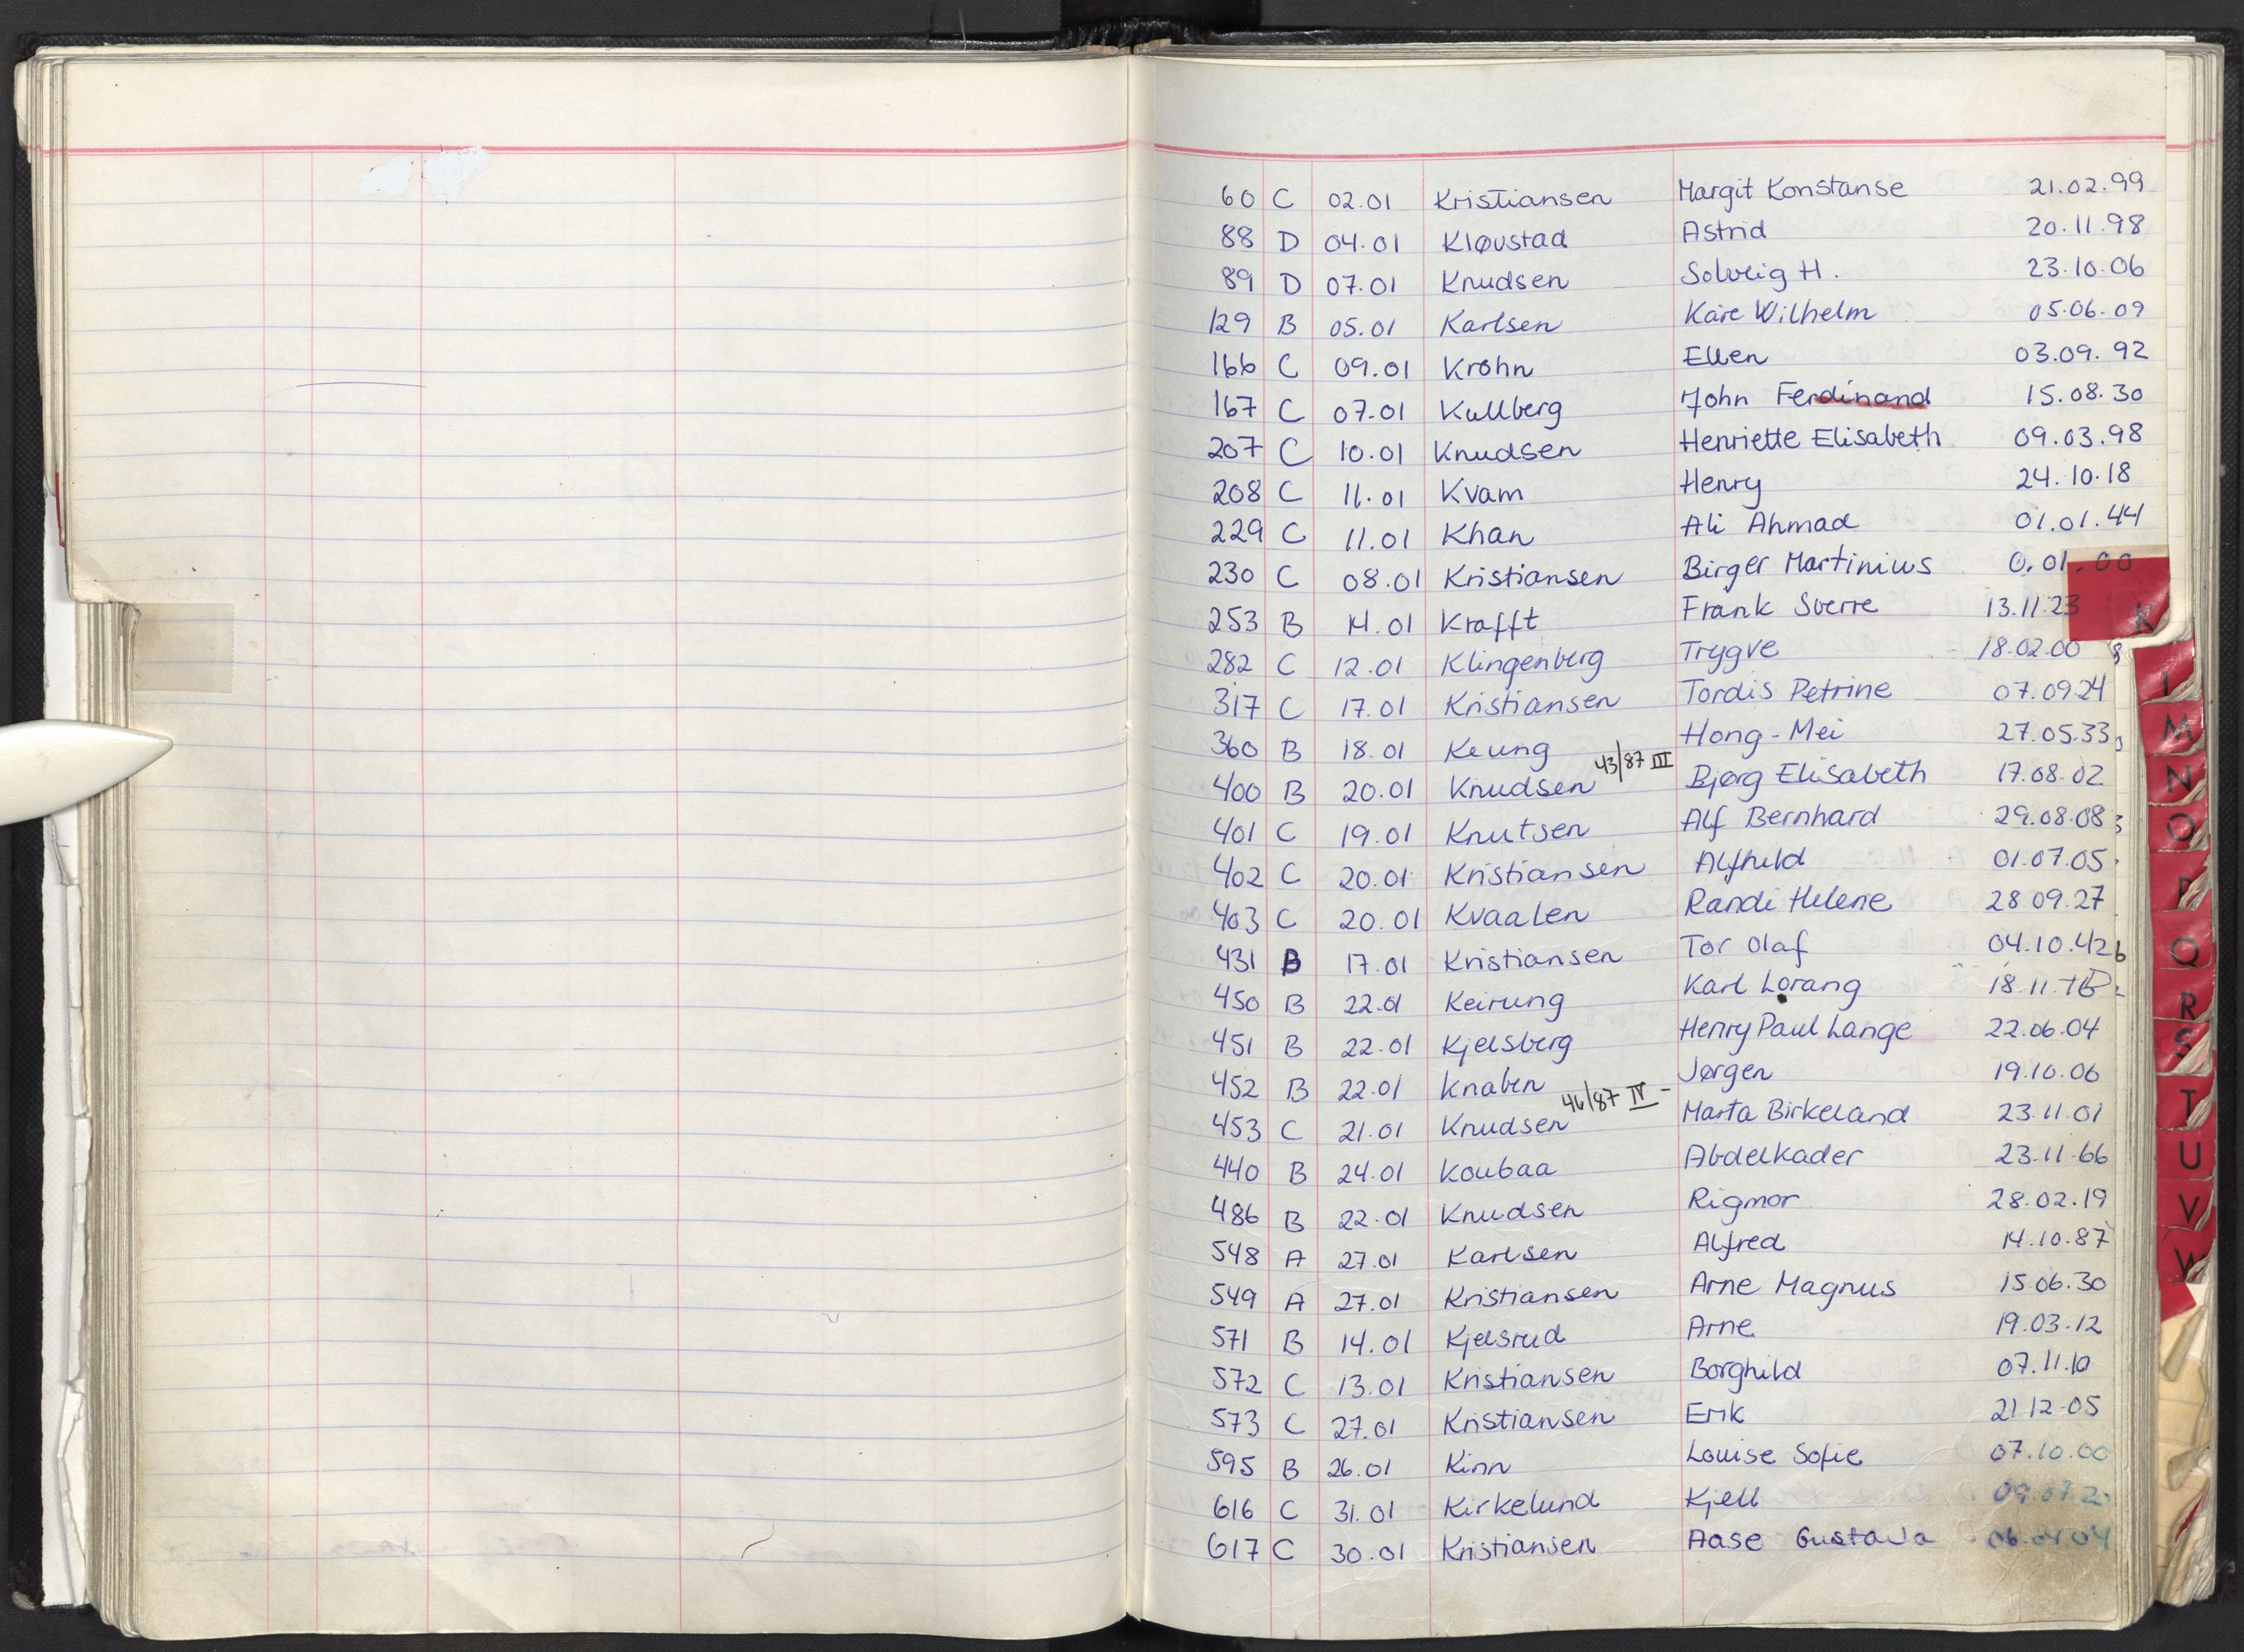 60 C 02.01 Kristiansen Margit Konstanse 21.02.99
88 D 04.01 Kløvstad Astrid 20.11.98
89 D 07.01 Knudsen Solveig H. 23.10.06
129 B 05.01 Karlsen Kåre Wilhelm 05.06.09
166 C 09.01 Krohn Ellen 03.09.92
167 C 07.01 Kullberg John Ferdinand 15.08.30
207 C 10.01 Knudsen Henriette Elisabeth 09.03.98
208 C 11.01 Kvam Henry 24.10.18
229 C 11.01 Khan Ali Ahmad 01.01.44
230 C 08.01 Kristiansen Birger Martinius 0.01.00
253 B 14.01 Krafft Frank Sverre 13.11.23 K
282 C 12.01 Klingenberg Trygve 18.02.00
317 C 17.01 Kristiansen Tordis Petrine 07.09.24
360 B 18.01 Keung Hong-Mei 27.05.33 M
400 B 20.01 Knudsen 43/87 III Bjørg Elisabeth 17.08.02 N
401 C 19.01 Knutsen Alf Bernhard 29.08.08 O
402 C 20.01 Kristiansen Alfhild 01.07.05 P
403 C 20.01 Kvaalen Randi Helene 28.09.27
431 B 17.01 Kristiansen Tor Olaf 04.10.42 Q
450 B 22.01 Keirung Karl Lorang 18.11. R
451 B 22.01 Kjelsberg Henry Paul Lange 22.06.04 S
452 B 22.01 Knaben Jørgen 19.10.06 T
453 C 21.01 Knudsen 46/87 IV - Marta Birkeland 23.11.01
440 B 24.01 Koubaa Abdelkader 23.11.66 U
486 B 22.01 Knudsen Rigmor 28.02.19 V
548 A 27.01 Karlsen Alfred 14.10.87 W
549 A 27.01 Kristiansen Arne Magnus 15.06.30
571 B 14.01 Kjelsrud Arne 19.03.12
572 C 13.01 Kristiansen Borghild 07.11.10
573 C 27.01 Kristiansen Erik 21.12.05
595 B 26.01 Kinn Louise Sofie 07.10.00
616 C 31.01 Kirkelund Kjell 09.07.20
617 C 30.01 Kristiansen Aase Gustava 06.04.04